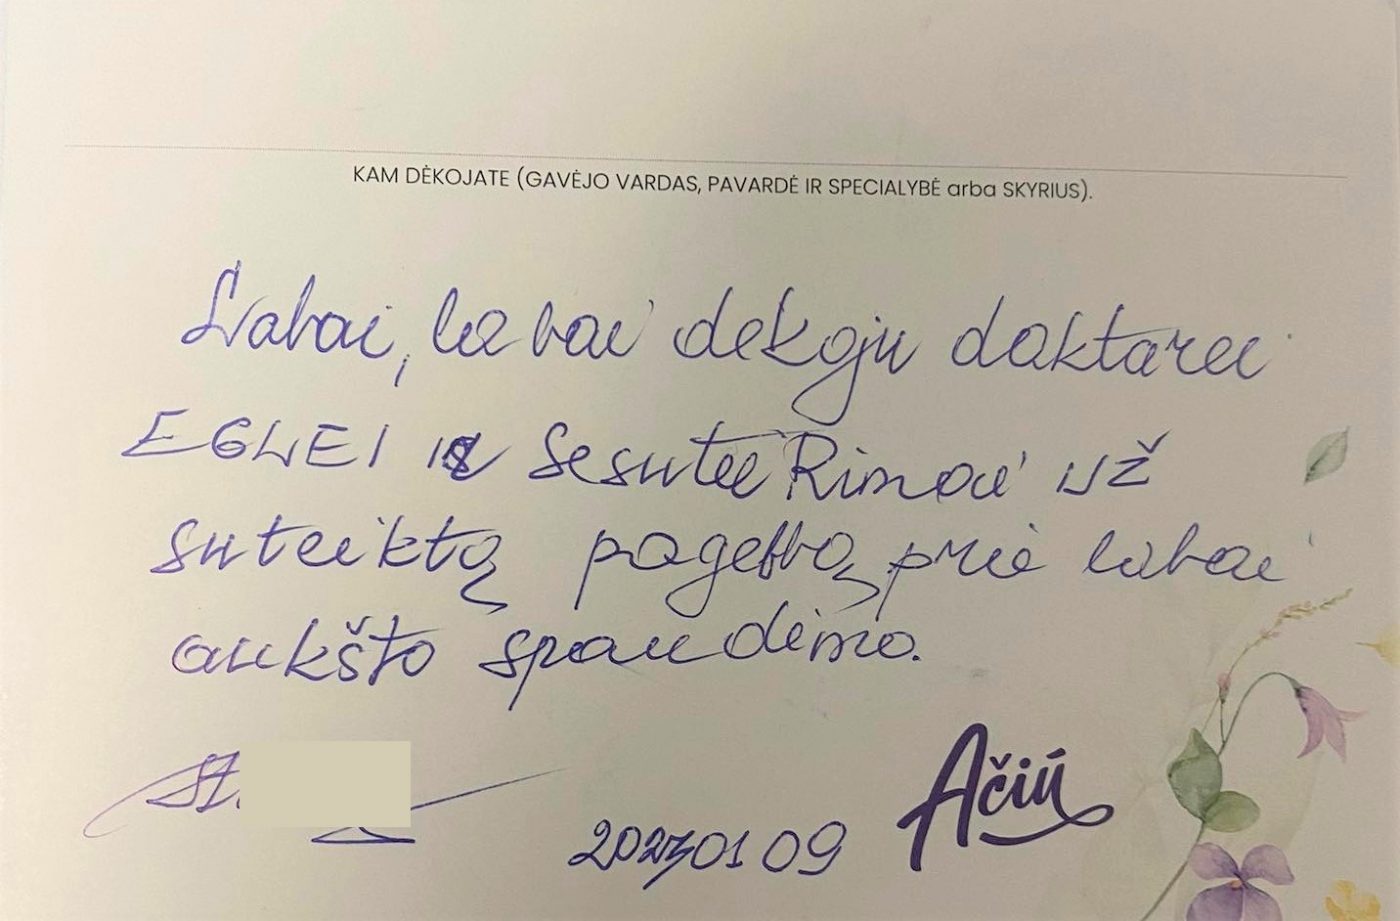 KAM DĖKOJATE (GAVĖJO VARDAS, PAVARDĖ IR SPECIALYBĖ arba SKYRIUS).
Labai, labai dekoju daktarei
EGLEI ir Sesutei Rimai už
suteiktą pagelbą prie labai
aukšto spaudimo.
Ačiū
2023 01 09